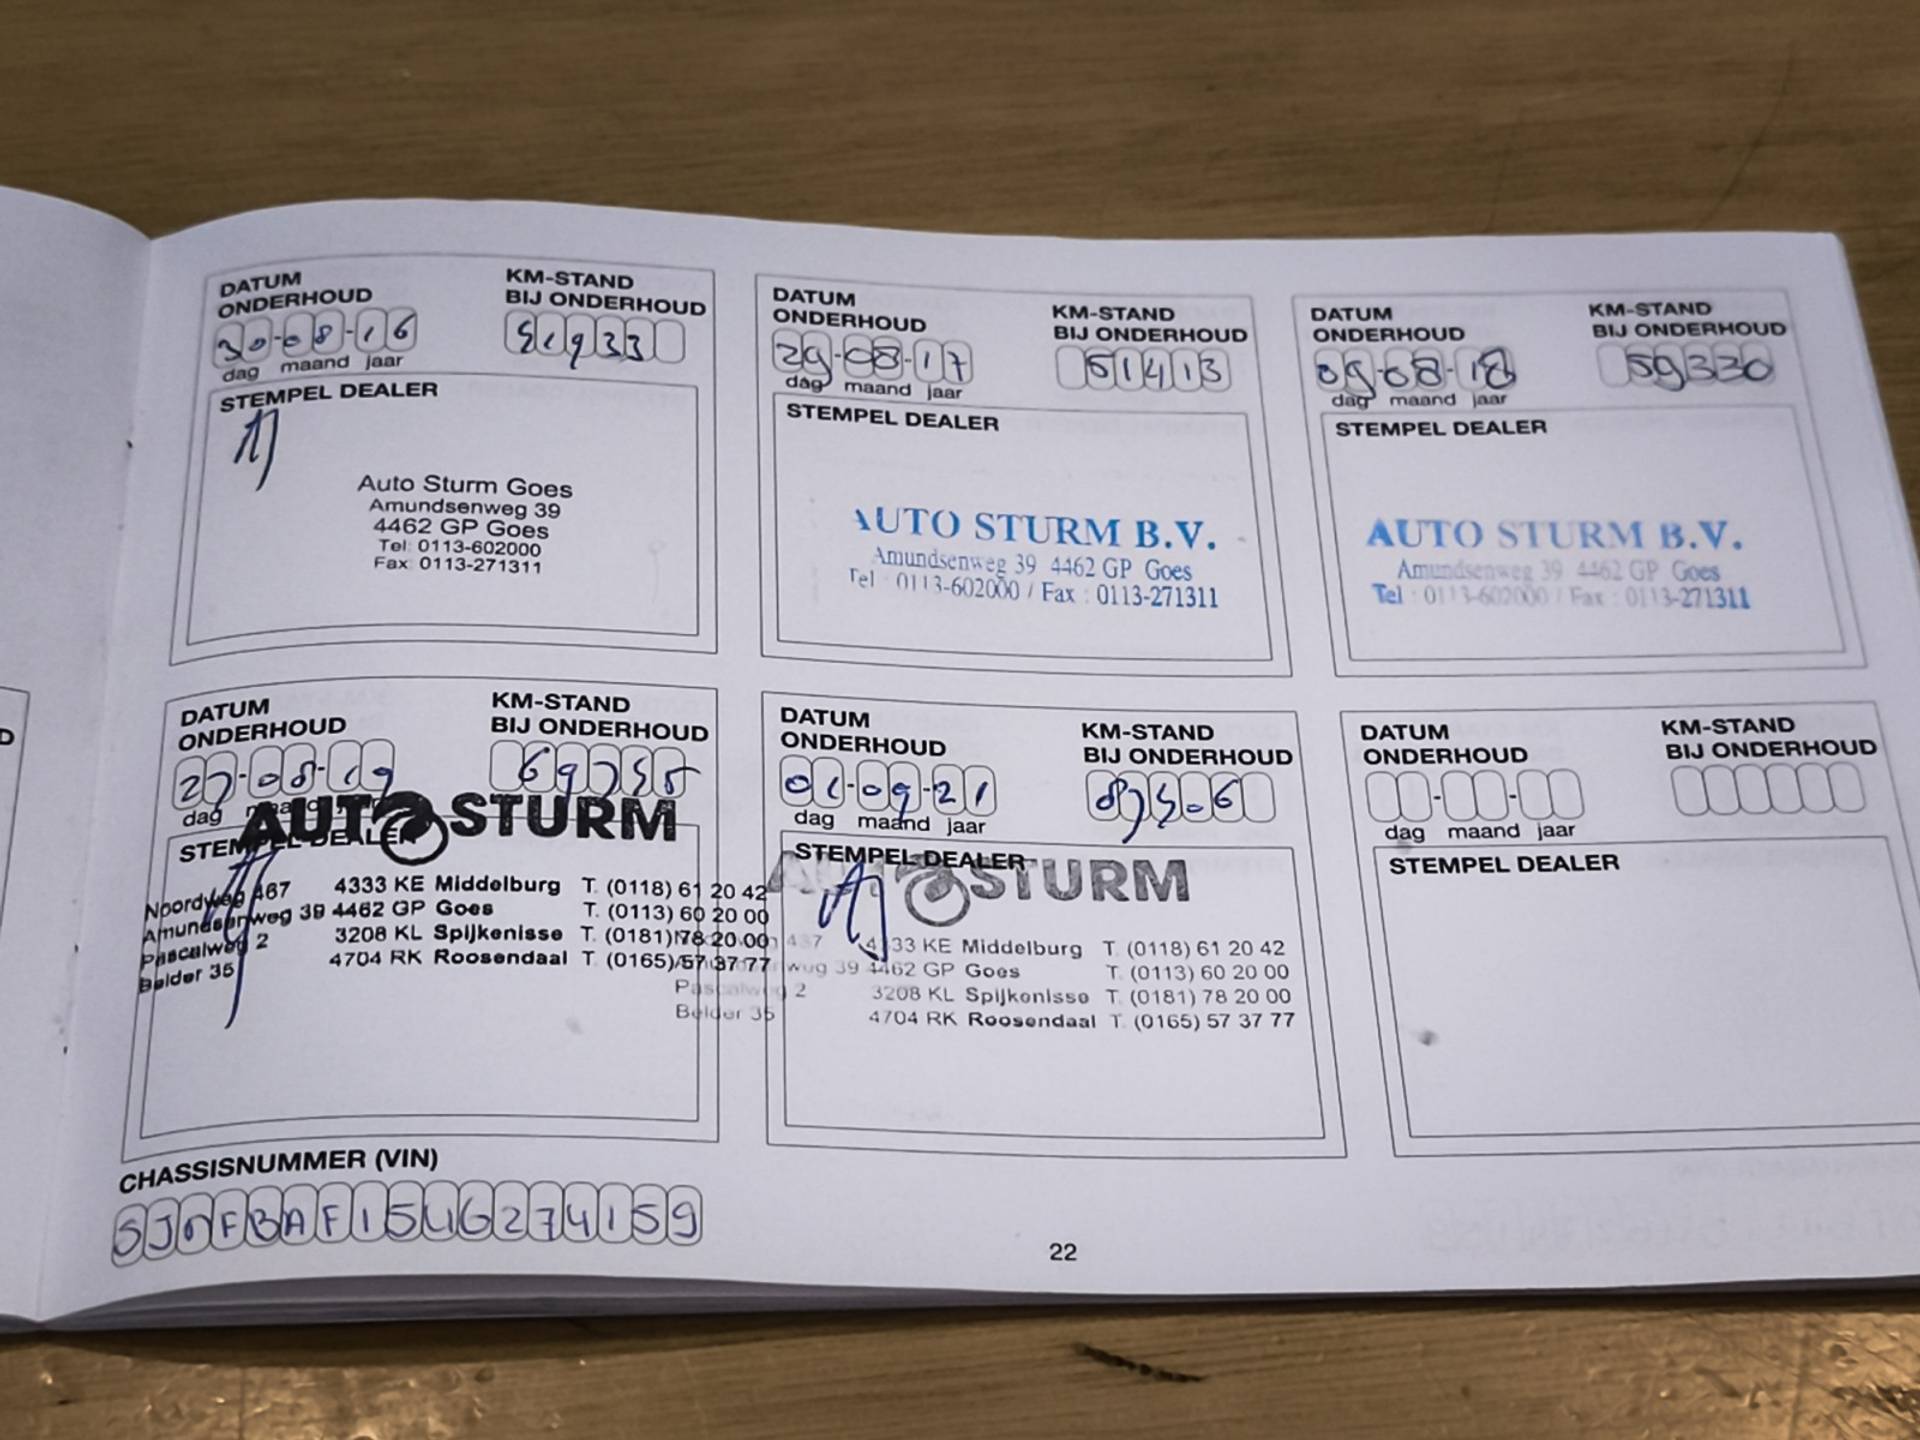 DATUM
ONDERHOUD
30-08-16
dag maand jaar
KM-STAND
BIJ ONDERHOUD
41933
STEMPEL DEALER
Auto Sturm Goes
Amundsenweg 39
4462 GP Goes
Tel: 0113-602000
Fax: 0113-271311
DATUM
ONDERHOUD
29-08-17
dag maand jaar
KM-STAND
BIJ ONDERHOUD
51413
STEMPEL DEALER
AUTO STURM B.V.
Amundsenweg 39 4462 GP Goes
Tel : 0113-602000 / Fax : 0113-271311
DATUM
ONDERHOUD
09-08-18
dag maand jaar
KM-STAND
BIJ ONDERHOUD
59330
STEMPEL DEALER
AUTO STURM B.V.
Amundsenweg 39 4462 GP Goes
Tel : 0113-602000 / Fax : 0113-271311
DATUM
ONDERHOUD
27-08-19
dag maand jaar
KM-STAND
BIJ ONDERHOUD
69755
STEMPEL DEALER
AUTO STURM
Noordweg 467 4333 KE Middelburg T. (0118) 61 20 42
Amundsenweg 39 4462 GP Goes T. (0113) 60 20 00
Pascalweg 2 3208 KL Spijkenisse T. (0181) 78 20 00
Belder 35 4704 RK Roosendaal T. (0165) 57 37 77
DATUM
ONDERHOUD
01-09-21
dag maand jaar
KM-STAND
BIJ ONDERHOUD
STEMPEL DEALER
AUTO STURM
437 4333 KE Middelburg T. (0118) 61 20 42
39 4462 GP Goes T. (0113) 60 20 00
Pascalweg 2 3208 KL Spijkenisse T. (0181) 78 20 00
Belder 35 4704 RK Roosendaal T. (0165) 57 37 77
DATUM
ONDERHOUD
dag maand jaar
KM-STAND
BIJ ONDERHOUD
STEMPEL DEALER
CHASSISNUMMER (VIN)
SJNFBAF15U6274159
22